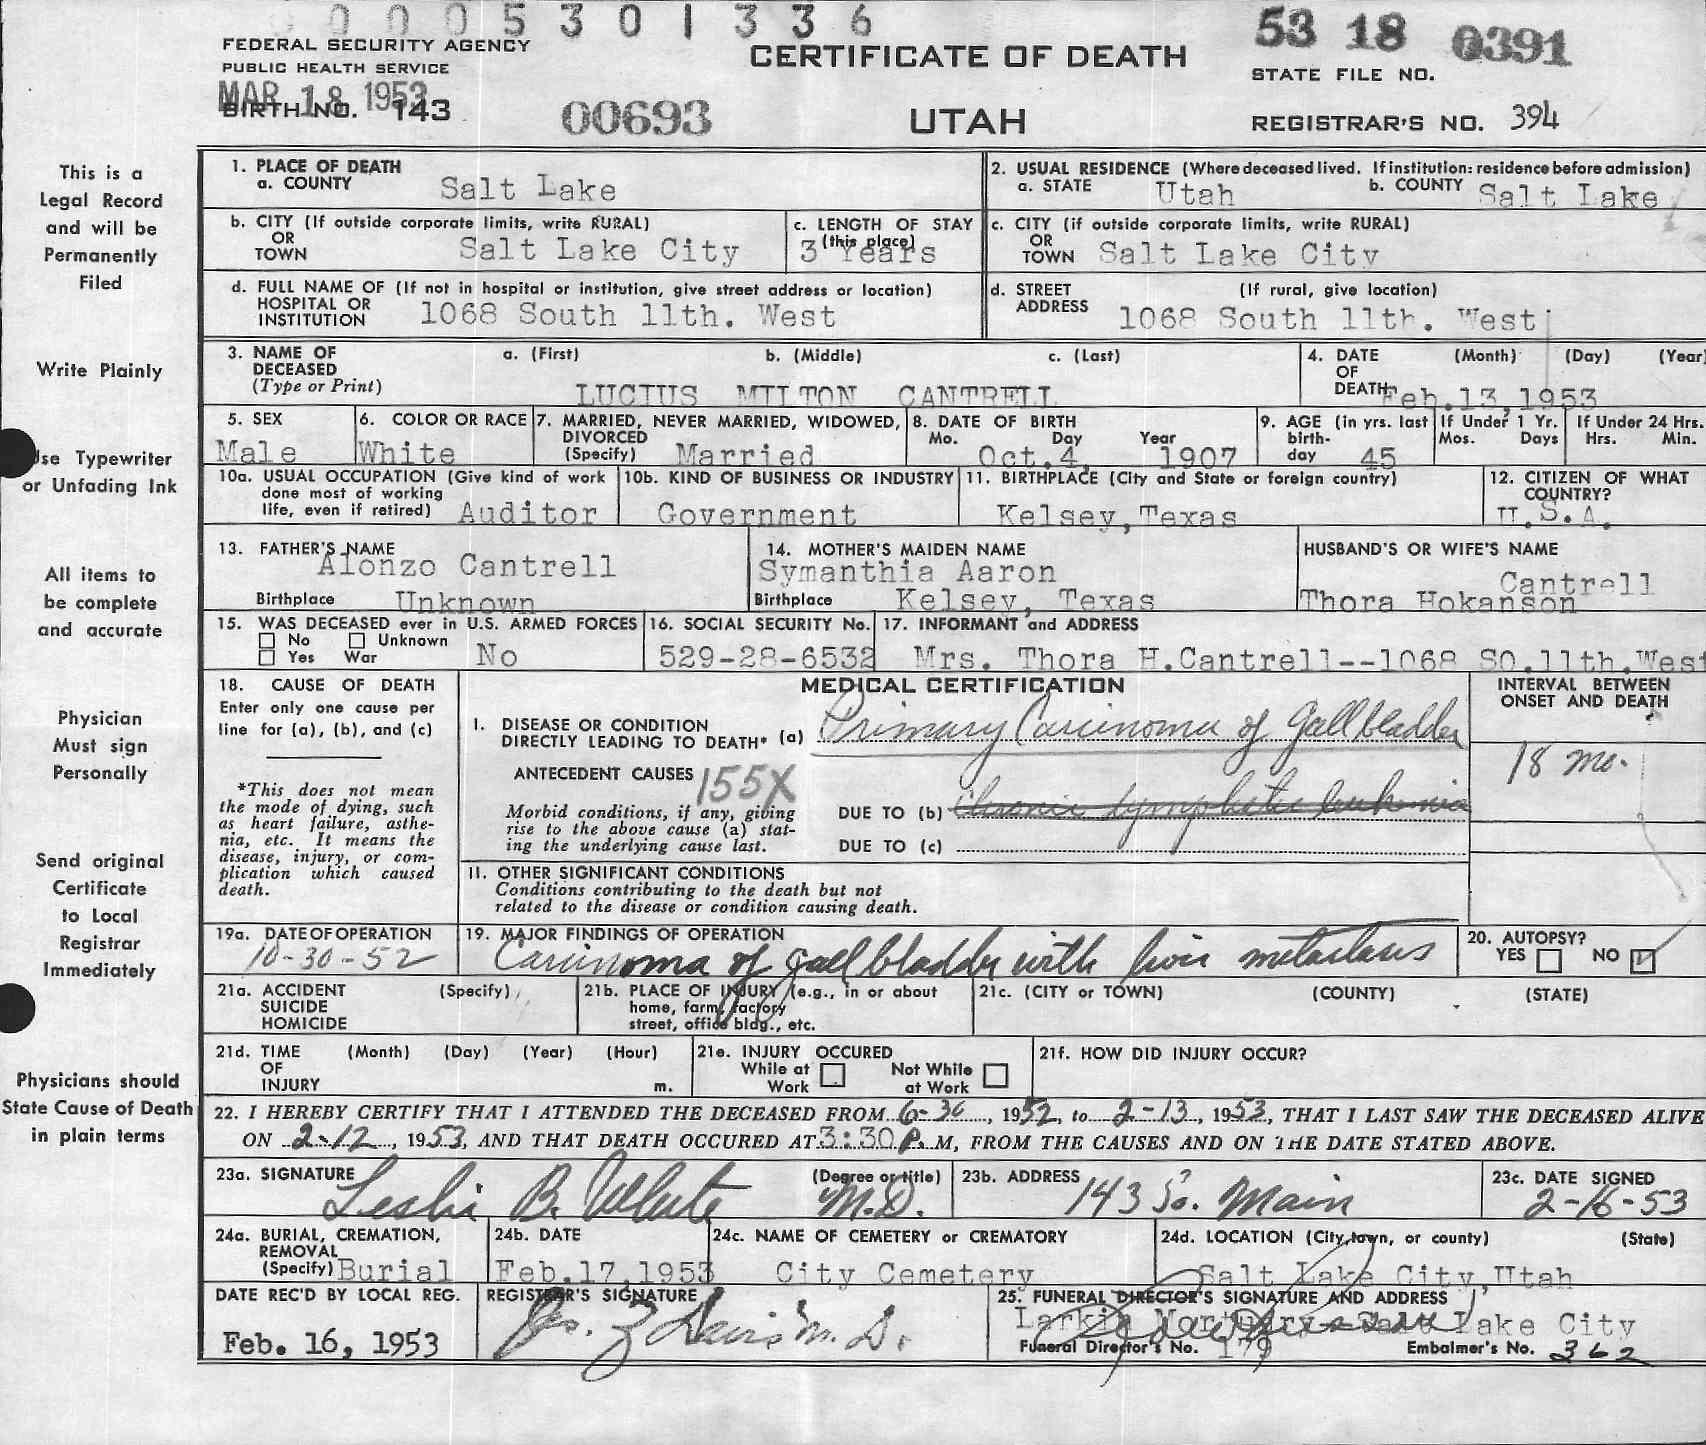 0 0 0 5 3 0 1 3 3 6
FEDERAL SECURITY AGENCY
PUBLIC HEALTH SERVICE
MAR 18 1953
BIRTH NO. 143
00693
CERTIFICATE OF DEATH
UTAH
53 18 0391
STATE FILE NO.
REGISTRAR'S NO. 394
This is a
Legal Record
and will be
Permanently
Filed
Write Plainly
Use Typewriter
or Unfading Ink
All items to
be complete
and accurate
Physician
Must sign
Personally
Send original
Certificate
to Local
Registrar
Immediately
Physicians should
State Cause of Death
in plain terms
1. PLACE OF DEATH
a. COUNTY Salt Lake
2. USUAL RESIDENCE (Where deceased lived. If institution: residence before admission)
a. STATE Utah b. COUNTY Salt Lake
b. CITY (If outside corporate limits, write RURAL)
OR
TOWN Salt Lake City
c. LENGTH OF STAY
(this place)
3 Years
c. CITY (if outside corporate limits, write RURAL)
OR
TOWN Salt Lake City
d. FULL NAME OF (If not in hospital or institution, give street address or location)
HOSPITAL OR
INSTITUTION 1068 South 11th. West
d. STREET (If rural, give location)
ADDRESS 1068 South 11th. West
3. NAME OF a. (First) b. (Middle) c. (Last)
DECEASED
(Type or Print) LUCIUS MILTON CANTRELL
4. DATE (Month) (Day) (Year)
OF
DEATH Feb.13,1953
5. SEX
Male
6. COLOR OR RACE
White
7. MARRIED, NEVER MARRIED, WIDOWED,
DIVORCED
(Specify) Married
8. DATE OF BIRTH
Mo. Day Year
Oct.4, 1907
9. AGE (in yrs. last
birth-
day 45
If Under 1 Yr.
Mos. Days
If Under 24 Hrs.
Hrs. Min.
10a. USUAL OCCUPATION (Give kind of work
done most of working
life, even if retired) Auditor
10b. KIND OF BUSINESS OR INDUSTRY
Government
11. BIRTHPLACE (City and State or foreign country)
Kelsey,Texas
12. CITIZEN OF WHAT
COUNTRY?
U.S.A.
13. FATHER'S NAME
Alonzo Cantrell
Birthplace Unknown
14. MOTHER'S MAIDEN NAME
Symanthia Aaron
Birthplace Kelsey, Texas
HUSBAND'S OR WIFE'S NAME
Cantrell
Thora Hokanson
15. WAS DECEASED ever in U.S. ARMED FORCES
No Unknown
Yes War No
16. SOCIAL SECURITY No.
529-28-6532
17. INFORMANT and ADDRESS
Mrs. Thora H.Cantrell--1068 SO.11th.West
18. CAUSE OF DEATH
Enter only one cause per
line for (a), (b), and (c)
*This does not mean
the mode of dying, such
as heart failure, asthe-
nia, etc. It means the
disease, injury, or com-
plication which caused
death.
MEDICAL CERTIFICATION
INTERVAL BETWEEN
ONSET AND DEATH
I. DISEASE OR CONDITION
DIRECTLY LEADING TO DEATH* (a) Primary Carcinoma of Gallbladder
18 mo.
ANTECEDENT CAUSES 155X
Morbid conditions, if any, giving
rise to the above cause (a) stat-
ing the underlying cause last.
DUE TO (b) Chronic lymphatic leukemia
DUE TO (c)
II. OTHER SIGNIFICANT CONDITIONS
Conditions contributing to the death but not
related to the disease or condition causing death.
19a. DATE OF OPERATION
10-30-52
19. MAJOR FINDINGS OF OPERATION
Carcinoma of gallbladder with liver metastases
20. AUTOPSY?
YES NO
21a. ACCIDENT (Specify)
SUICIDE
HOMICIDE
21b. PLACE OF INJURY (e.g., in or about
home, farm, factory
street, office bldg., etc.
21c. (CITY or TOWN) (COUNTY) (STATE)
21d. TIME (Month) (Day) (Year) (Hour)
OF
INJURY m.
21e. INJURY OCCURED
While at Not While
Work at Work
21f. HOW DID INJURY OCCUR?
22. I HEREBY CERTIFY THAT I ATTENDED THE DECEASED FROM 6-30, 1952, to 2-13, 1953, THAT I LAST SAW THE DECEASED ALIVE
ON 2-12, 1953, AND THAT DEATH OCCURED AT 3:30 P. M, FROM THE CAUSES AND ON THE DATE STATED ABOVE.
23a. SIGNATURE (Degree or title)
Leslie B. White M.D.
23b. ADDRESS
143 So. Main
23c. DATE SIGNED
2-16-53
24a. BURIAL, CREMATION,
REMOVAL
(Specify) Burial
24b. DATE
Feb.17,1953
24c. NAME OF CEMETERY or CREMATORY
City Cemetery
24d. LOCATION (City, town, or county) (State)
Salt Lake City,Utah
DATE REC'D BY LOCAL REG.
Feb. 16, 1953
REGISTRAR'S SIGNATURE
Davis M.D.
25. FUNERAL DIRECTOR'S SIGNATURE AND ADDRESS
Larkin Mortuary-Salt Lake City
Funeral Director's No. 179 Embalmer's No. 362